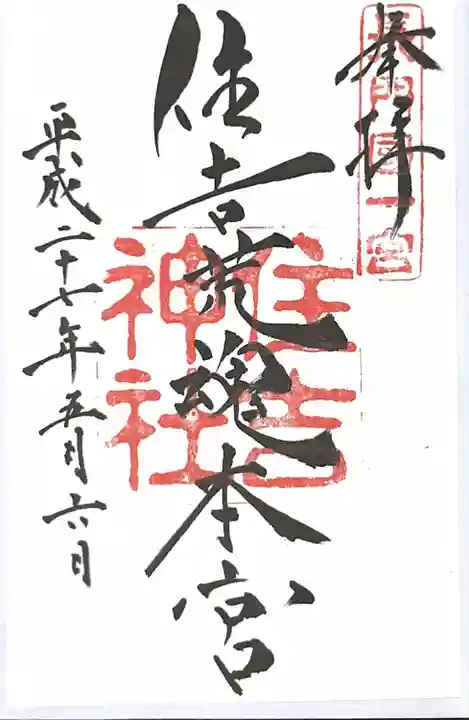 奉拝
長門國一宮
住吉荒魂本宮
住吉
神社
平成二十七年五月六日